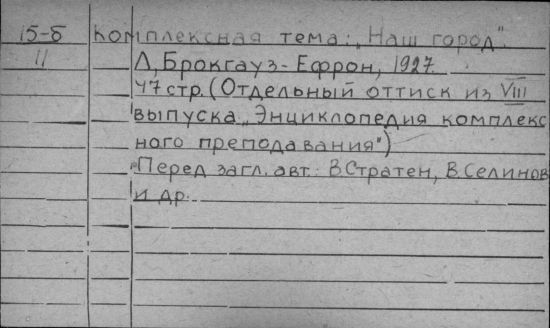 15-б Комплексная тема: „Наш город".
11 Л, Брокгауз-Ефрон, 1927.
47 стр. (Отдельный оттиск из VIII
выпуска „Энциклопедия комплекс
ного преподавания")
Перед загл. авт.: В.Стратен, В.Селинов
и др.